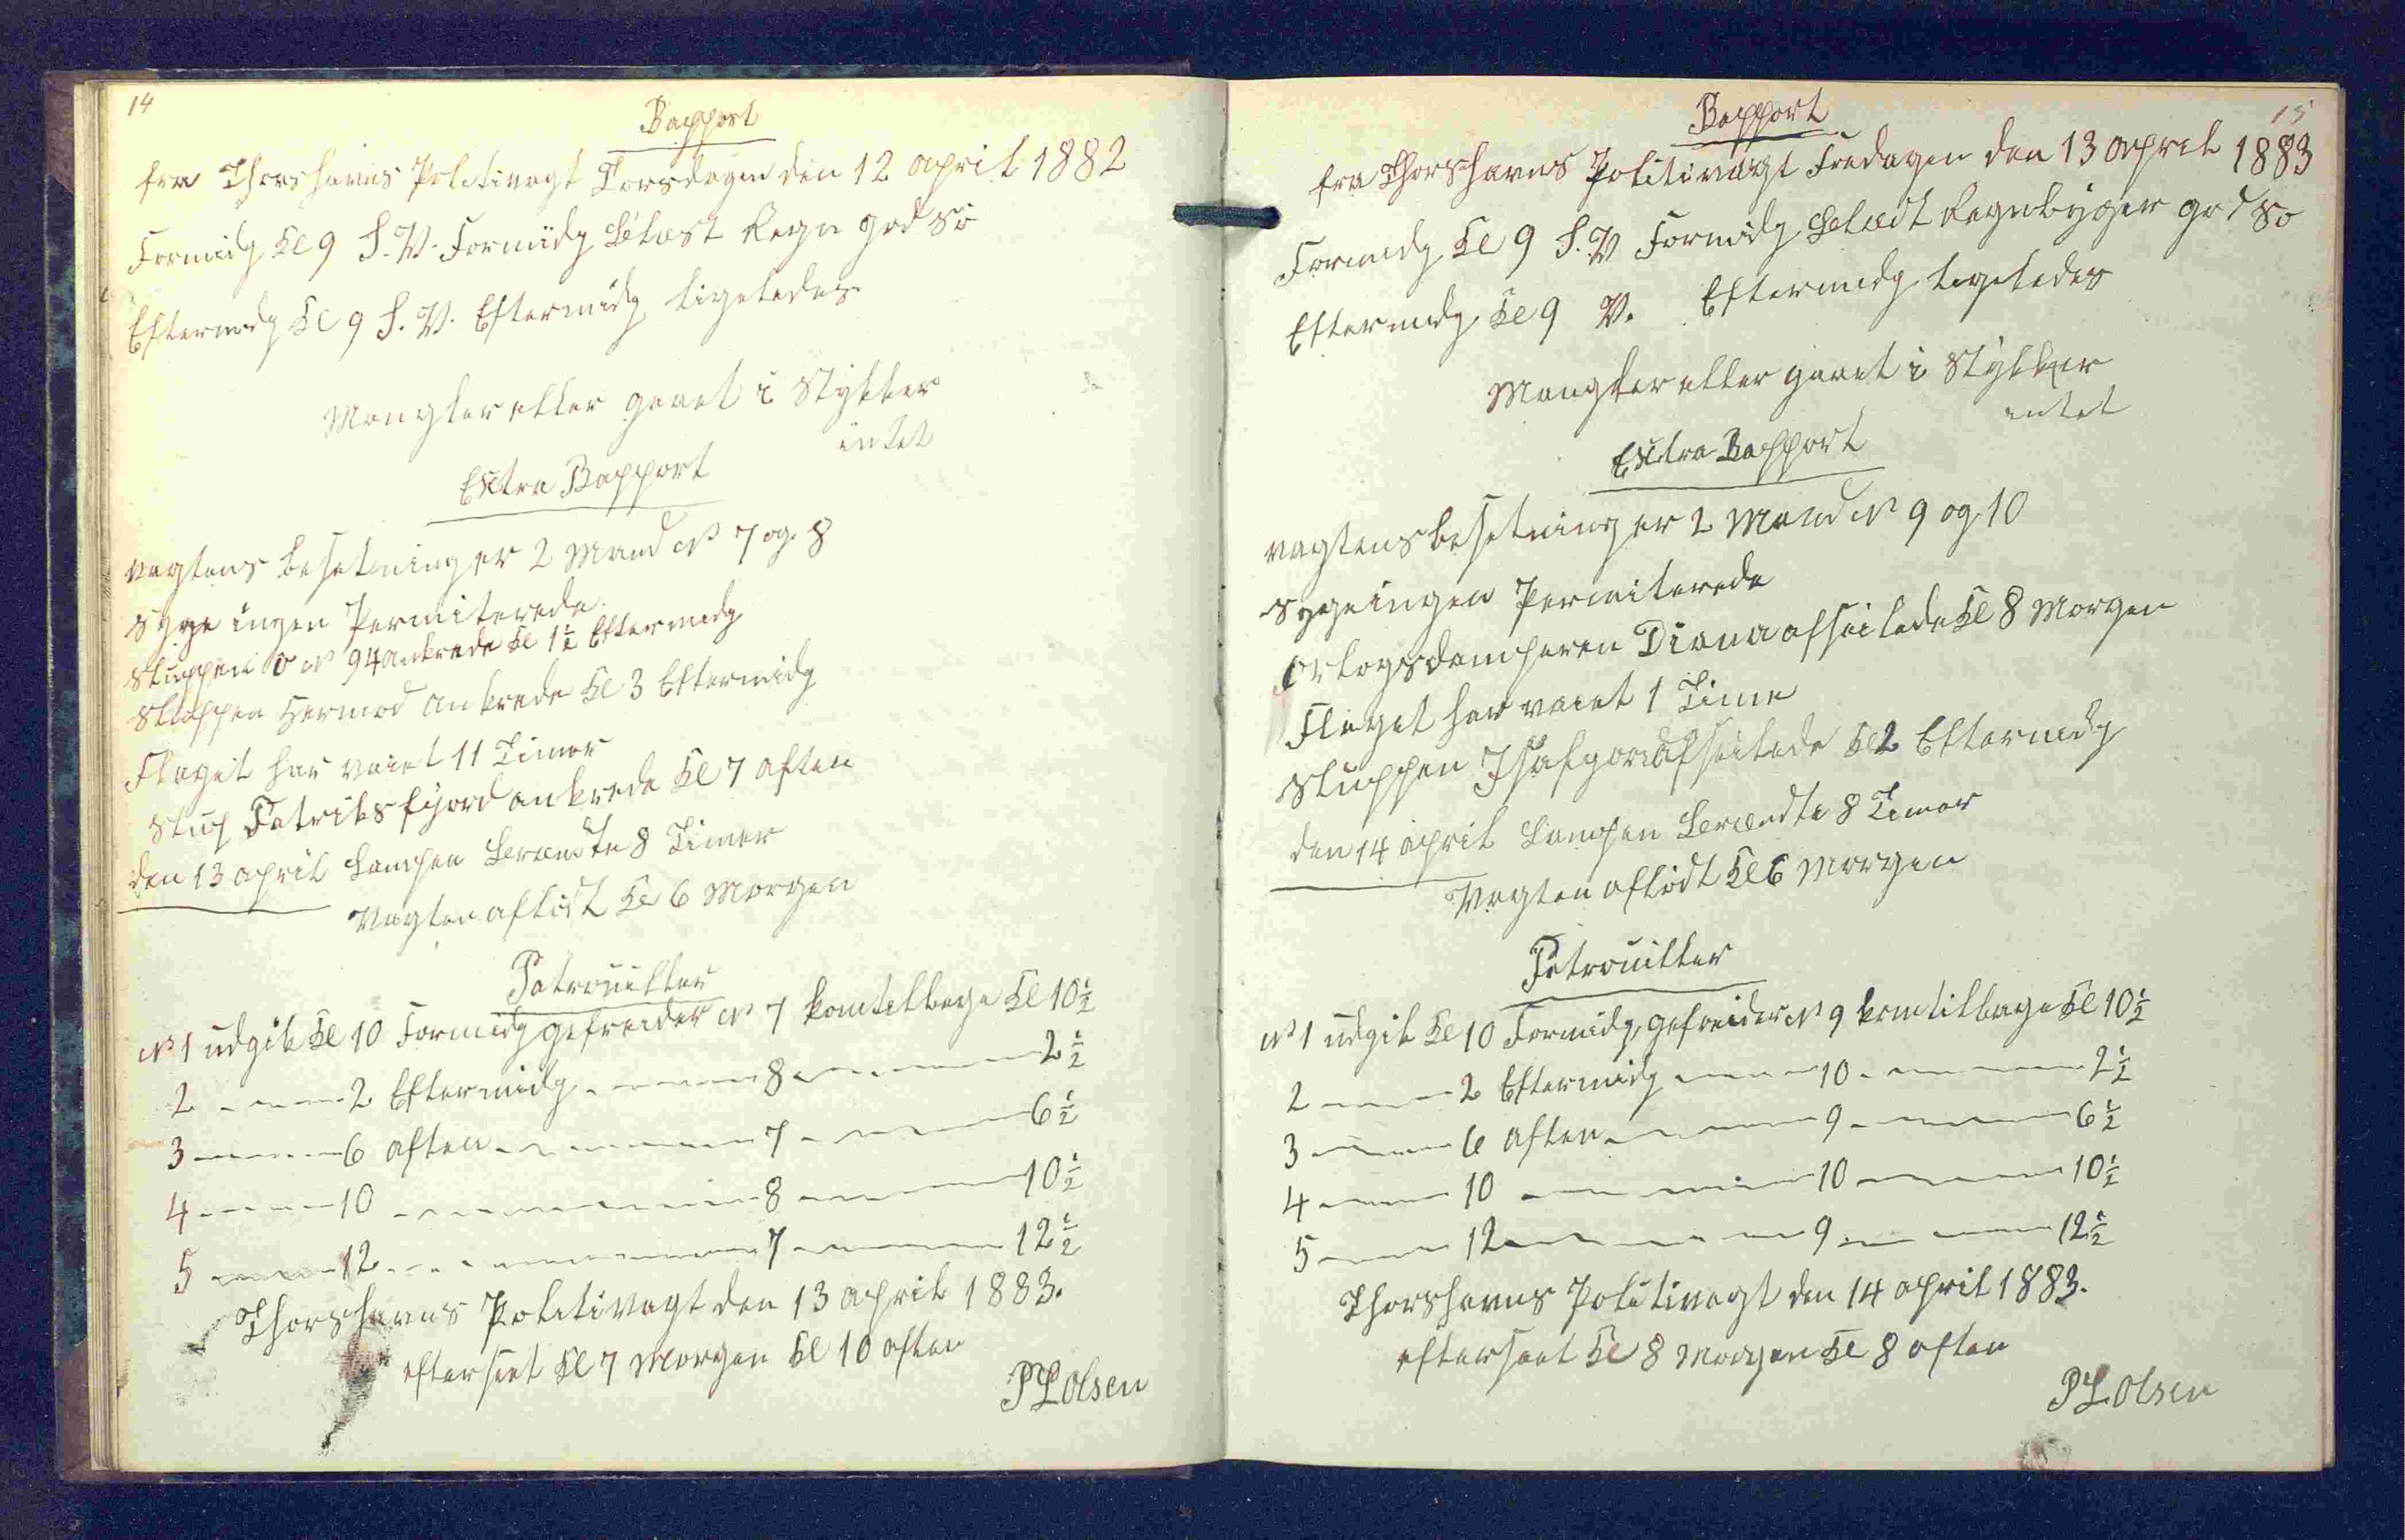 14
Rapport
fra Thorshavns Politivagt Torsdagen den 12 april 1882
Formidg Kl 9 S.V. Formidg Blæst Regn god Sö
Eftermidg Kl 9 S.V. Eftermidg ligeledes
Mangler eller gaaet i Stykker
intet
Extra Rapport
vagtens besetning er 2 Mand No 7 og 8
Syge ingen Permiterede
Sluppen No 94 ankrede Kl 1½ Eftermidg
Sluppen Hermod ankrede Kl 3 Eftermidg
Flaget har vaiet 11 Timer
Slup Patriksfjord ankrede Kl 7 aften
den 13 april Lampen Brændte 8 Timer
Vagten aflöst Kl 6 Morgen
Patrouiller
No 1 udgik Kl 10 Formidg gefreider No 7 kom tilbage Kl 10½
2 2 Eftermidg 8 2½
3 6 aften 7 6½
4 10 8 10½
5 12 7 12½
Thorshavns Politivagt den 13 april 1883.
efterseet Kl 7 Morgen Kl 10 aften
PLOlsen
15
Rapport
fra Thorshavns Politivagt Fredagen den 13 april 1883
Formidg Kl 9 S.V Formidg Blæst Regnbyger god So
Eftermidg Kl 9 V. Eftermidg ligeledes
Mangler eller gaaet i Stykker
intet
Extra Rapport
vagtens besetning er 2 Mand No 9 og 10
Syge ingen Permiterede
Orlogsdamperen Diana afseilede Kl 8 Morgen
Flaget har vaiet 1 Time
Sluppen Isafjord afseilede Kl 2 Eftermidg
den 14 april Lampen Brændte 8 Timer
Vagten aflöst Kl 6 Morgen
Patrouiller
No 1 udgik Kl 10 Formidg, gefreider No 9 kom tilbage Kl 10½
2 2 Eftermidg 10 2½
3 6 aften 9 6½
4 10 10 10½
5 12 9 12½
Thorshavns Politivagt den 14 april 1883.
efterseet Kl 8 Morgen Kl 8 aften
PLOlsen